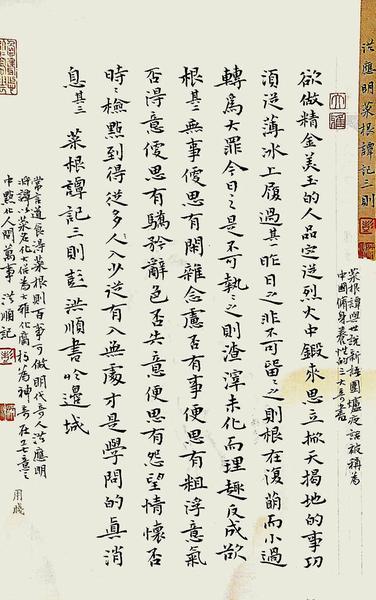 洪應明菜根譚記三則
菜根譚與世說新語圍爐夜話被稱為
中國脩身養性的三大奇書
欲做精金美玉的人品定從烈火中鍛來思立掀天揭地的事功
須從薄冰上履過其一昨日之非不可留〻之則根在復萌而小過
轉為大罪今日之是不可執〻之則渣滓未化而理趣反成欲
根其二無事便思有閑雜念慮否有事便思有粗浮意氣
否得意便思有驕矜辭色否失意便思有怨望情懷否
時〻檢點到得從多入少從有入無處才是學問的真消
息其三 菜根譚記三則彭洪順書於邊城
常言道食得菜根則百事可做明代奇人洪應明
將譚以菜名化大俗為大雅化腐朽為神奇在
中點化人間萬事 洪順記
用牋